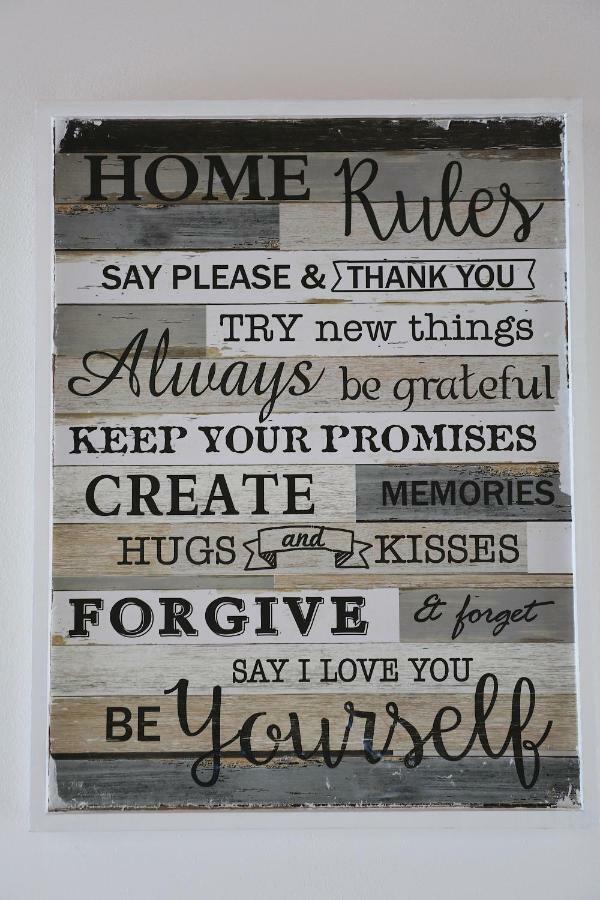 HOME Rules
SAY PLEASE & THANK YOU
TRY new things
Always be grateful
KEEP YOUR PROMISES
CREATE MEMORIES
HUGS and KISSES
FORGIVE & forget
SAY I LOVE YOU
BE Yourself